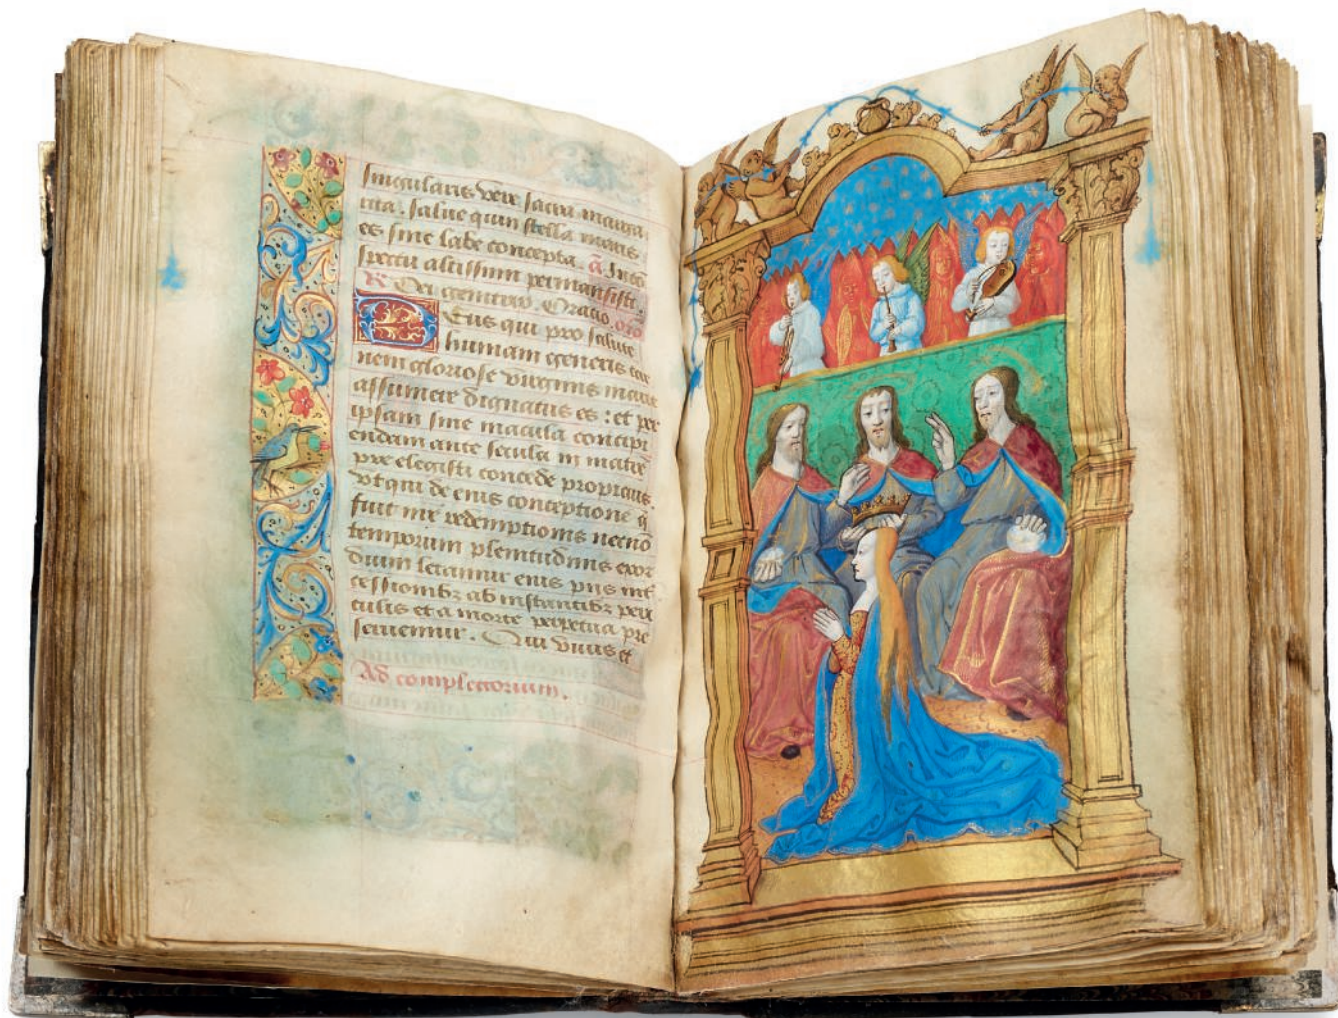 singularis vere sacra marga
rita. salue quin stella maris
es sine labe concepta. a. In
spectu altissimi permansisti
R Dei genitrix. Oracio. oro
Deus qui pro salute
humani generis car
nem gloriose virginis marie
assumere dignatus es : et per
ipsam sine macula concipi
endam ante secula in matre
pre elegisti concede propicius.
vt qui de eius conceptione q
fuit nr̄e redemptionis necnō
temporum plenitudinis exor
dium letamur eius piis int
cessionibz ab instantibz peri
culis et a morte perpetua pre
seruemur. Qui viuis et
Ad completorium.